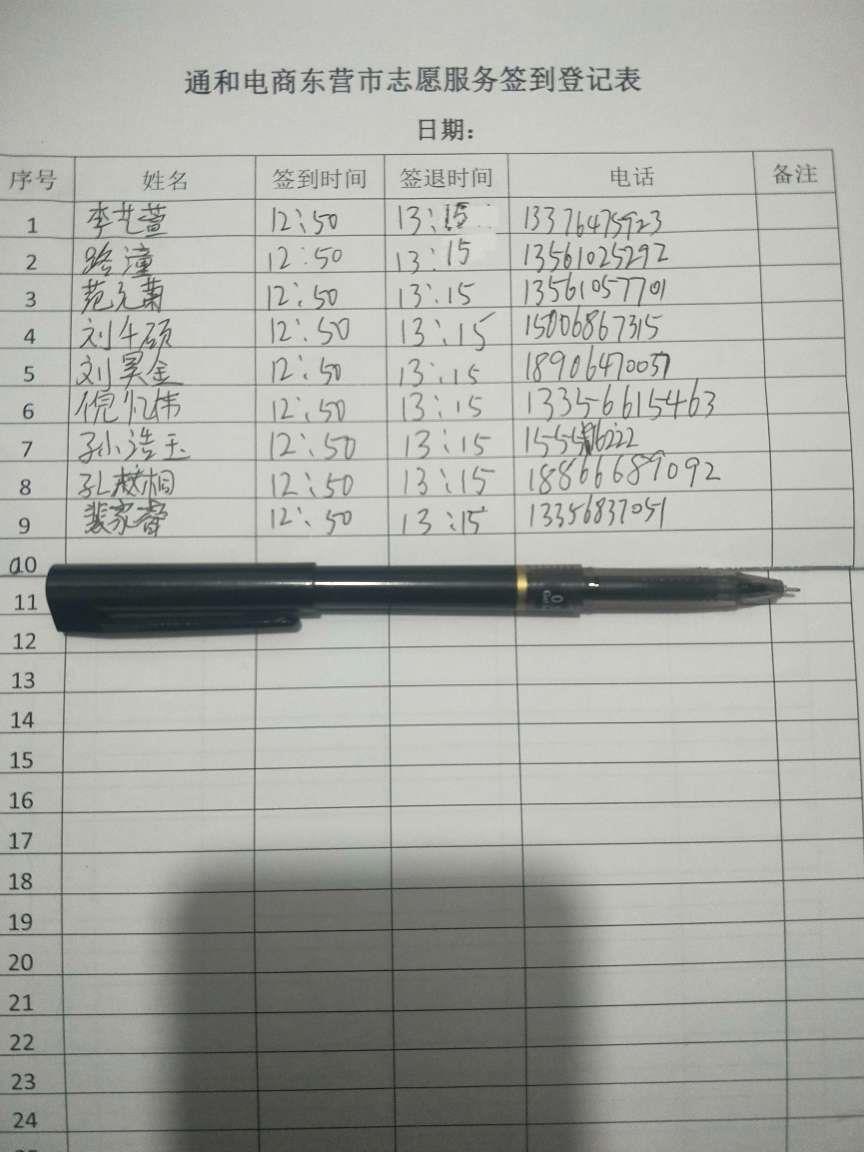 通和电商东营市志愿服务签到登记表
日期：
序号 姓名 签到时间 签退时间 电话 备注
1 李艺萱 12:50 13:15 13376475923
2 路潼 12:50 13:15 13561025292
3 范元菊 12:50 13:15 13561057701
4 刘午硕 12:50 13:15 15006867315
5 刘昊金 12:50 13:15 18906470057
6 倪忆伟 12:50 13:15 13356615463
7 孙浩玉 12:50 13:15
8 孔 桐 12:50 13:15 18866689092
9 裴家睿 12:50 13:15 13356837051
10
11
12
13
14
15
16
17
18
19
20
21
22
23
24